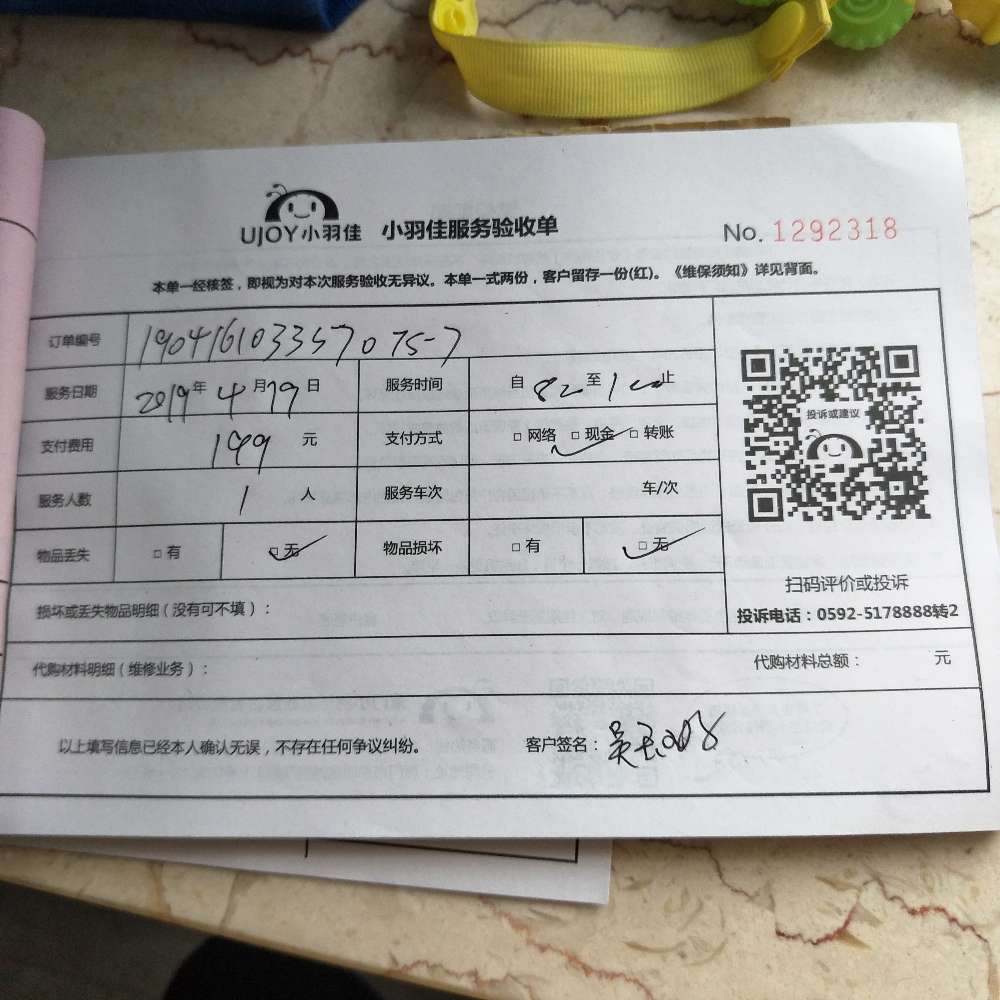 UJOY小羽佳 小羽佳服务验收单 No. 1292318
本单一经核签，即视为对本次服务验收无异议。本单一式两份，客户留存一份(红)。《维保须知》详见背面。
订单编号 190416103357075-7
服务日期 2019年4月19日 服务时间 自 至 止
支付费用 199 元 支付方式 □网络 □现金 □转账
服务人数 1 人 服务车次 车/次
物品丢失 □有 □无 物品损坏 □有 □无
投诉或建议
扫码评价或投诉
投诉电话：0592-5178888转2
损坏或丢失物品明细（没有可不填）：
代购材料明细（维修业务）： 代购材料总额： 元
以上填写信息已经本人确认无误，不存在任何争议纠纷。 客户签名：